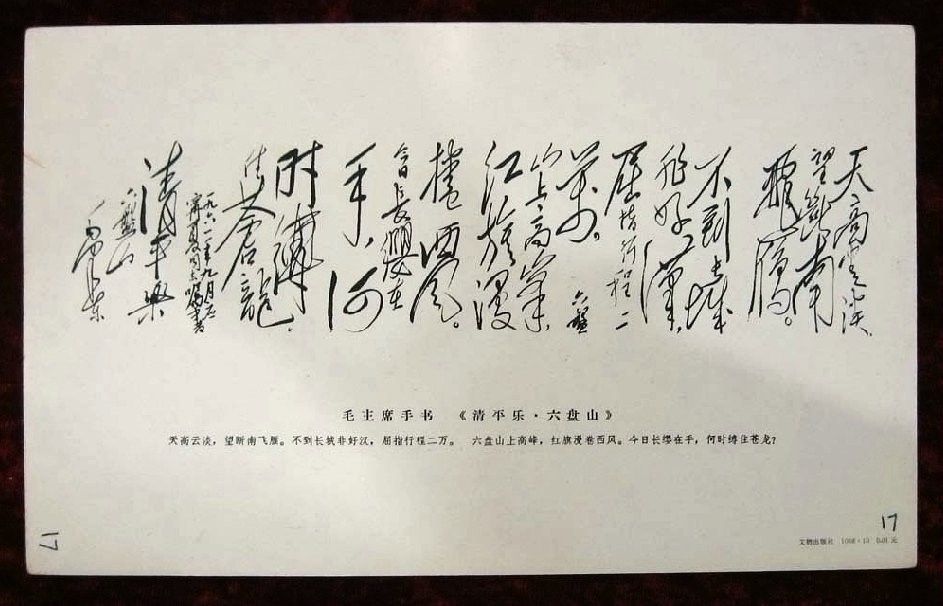 天高雲淡,
望斷南
飛雁。
不到長城
非好漢,
屈指行程二
萬。六盤
山上高峯,
红旗漫
捲西风。
今日長纓在
手,何
时縛
住蒼龍
一九六一年九月
寧夏同志嘱书
清平樂
六盤山
毛澤東
毛主席手书 《清平乐·六盘山》
天高云淡,望断南飞雁。不到长城非好汉,屈指行程二万。 六盘山上高峰,红旗漫卷西风。今日长缨在手,何时缚住苍龙?
17
17
文物出版社